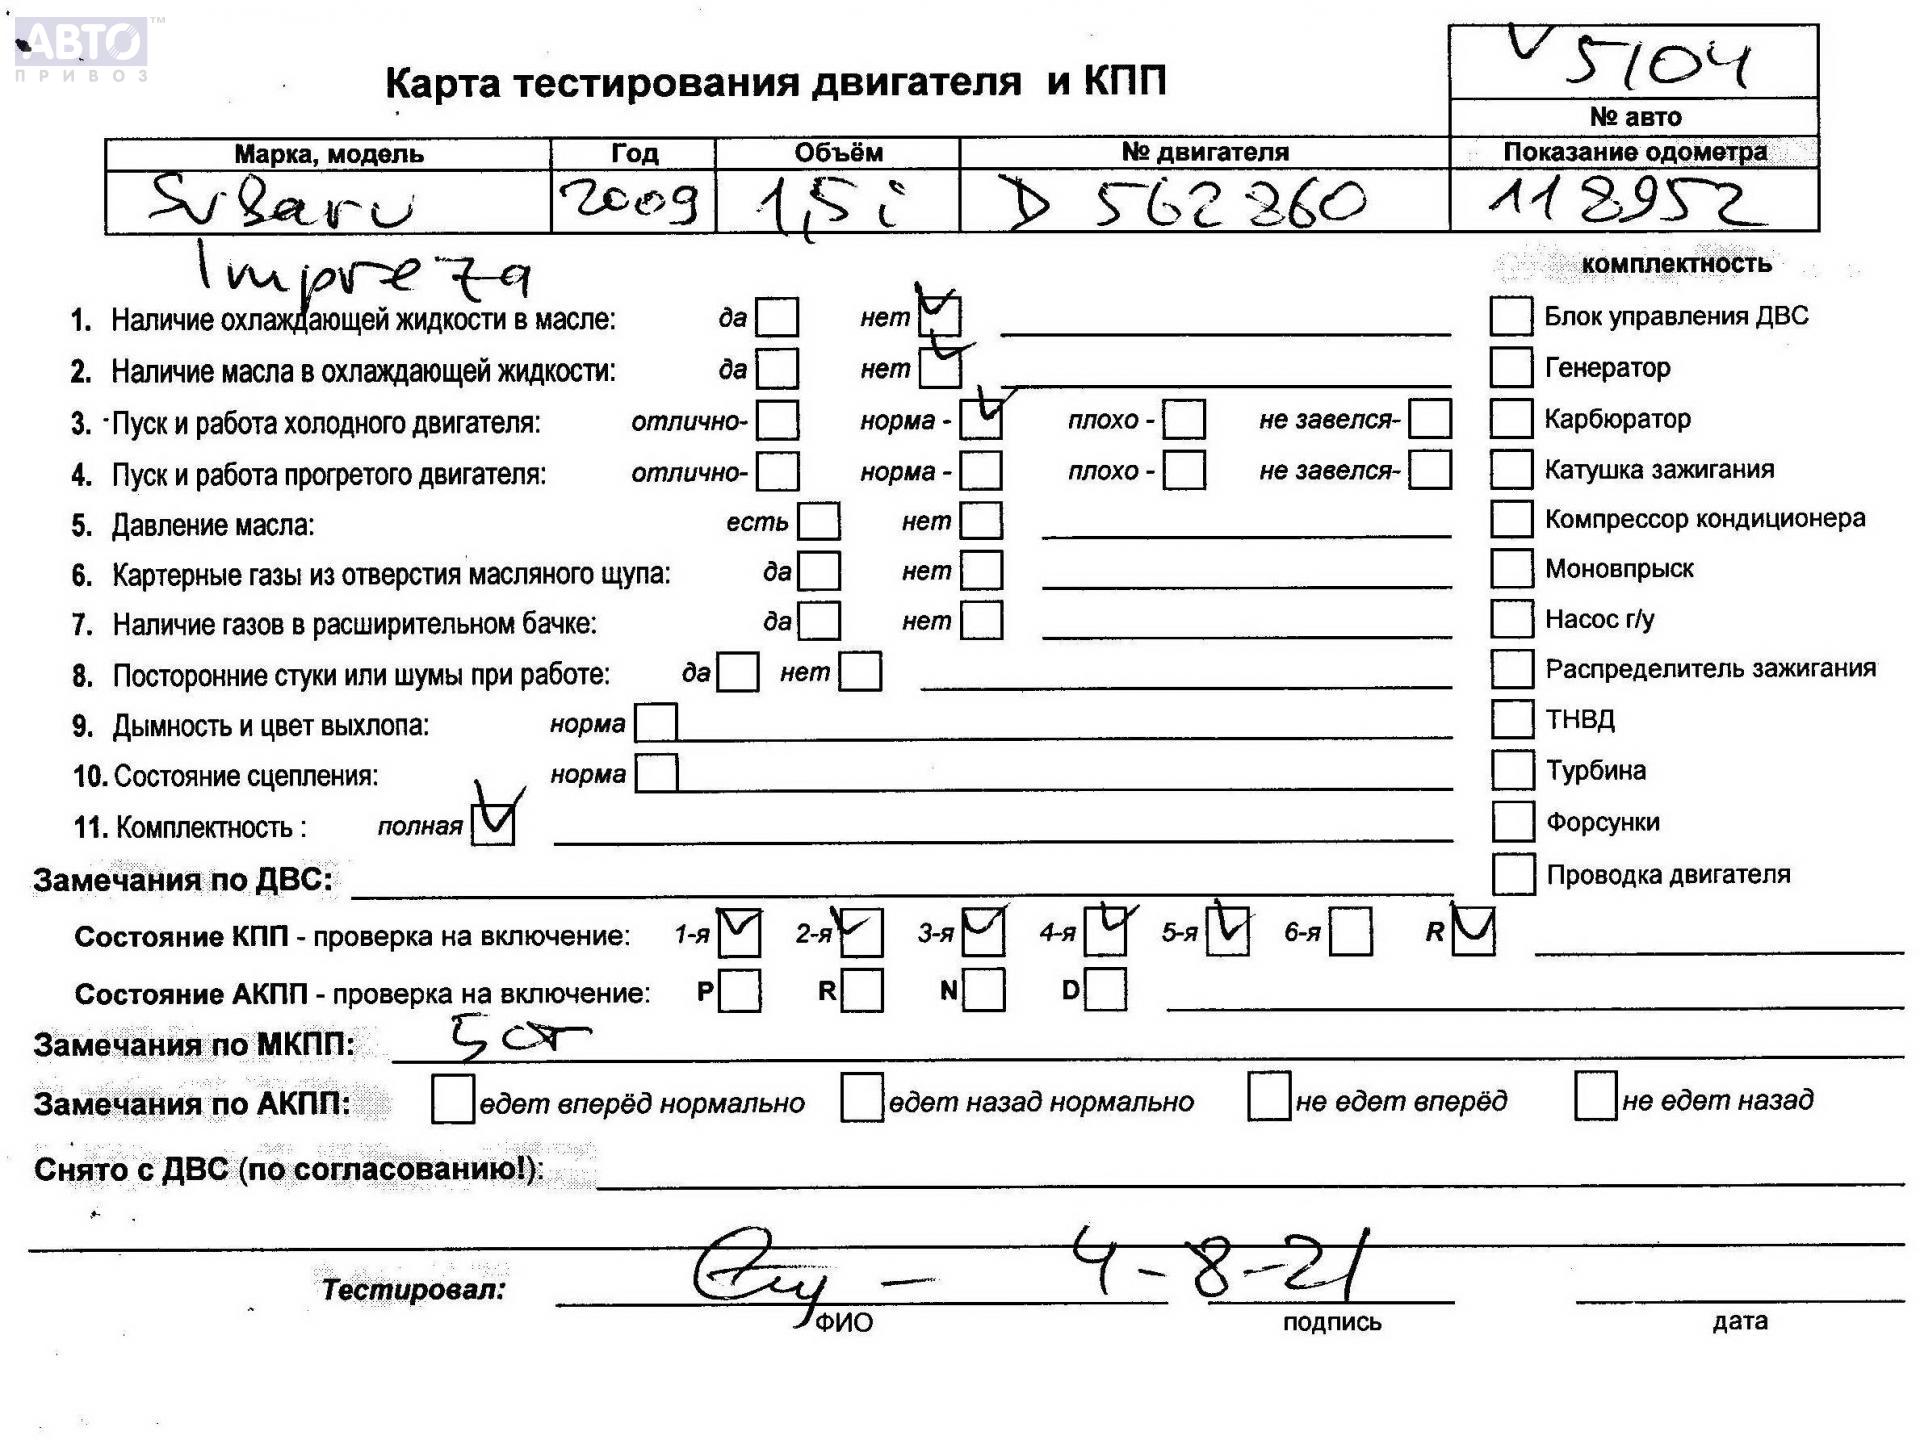 АВТО™
ПРИВОЗ
V 5104
Карта тестирования двигателя и КПП
№ авто
Марка, модель Год Объём № двигателя Показание одометра
Subaru 2009 1,5 i D 562860 118952
Impreza
комплектность
1. Наличие охлаждающей жидкости в масле: да нет Блок управления ДВС
2. Наличие масла в охлаждающей жидкости: да нет Генератор
3. Пуск и работа холодного двигателя: отлично- норма - плохо - не завелся- Карбюратор
4. Пуск и работа прогретого двигателя: отлично- норма - плохо - не завелся- Катушка зажигания
5. Давление масла: есть нет Компрессор кондиционера
6. Картерные газы из отверстия масляного щупа: да нет Моновпрыск
7. Наличие газов в расширительном бачке: да нет Насос г/у
8. Посторонние стуки или шумы при работе: да нет Распределитель зажигания
9. Дымность и цвет выхлопа: норма ТНВД
10. Состояние сцепления: норма Турбина
11. Комплектность : полная Форсунки
Замечания по ДВС: Проводка двигателя
Состояние КПП - проверка на включение: 1-я 2-я 3-я 4-я 5-я 6-я R
Состояние АКПП - проверка на включение: P R N D
Замечания по МКПП: 5 ст
Замечания по АКПП: едет вперёд нормально едет назад нормально не едет вперёд не едет назад
Снято с ДВС (по согласованию!):
Тестировал: 4-8-21
ФИО подпись дата